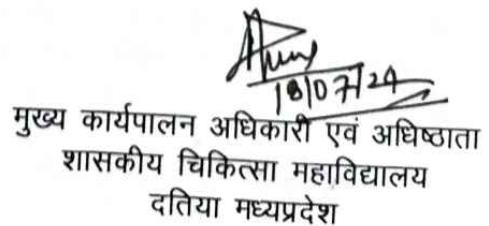 18/07/24
मुख्य कार्यपालन अधिकारी एवं अधिष्ठाता
शासकीय चिकित्सा महाविद्यालय
दतिया मध्यप्रदेश